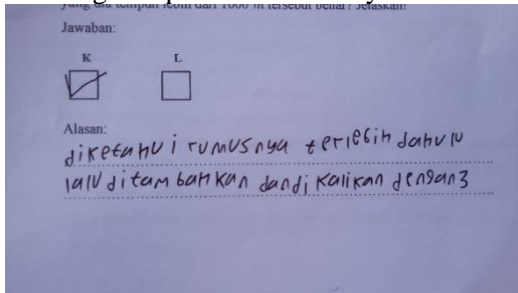 yang dia tempuh lebih dari 1000 m tersebut benar? Jelaskan!
Jawaban:
K L
Alasan:
diketahui rumusnya terlebih dahulu
lalu ditambahkan dan dikalikan dengan 3